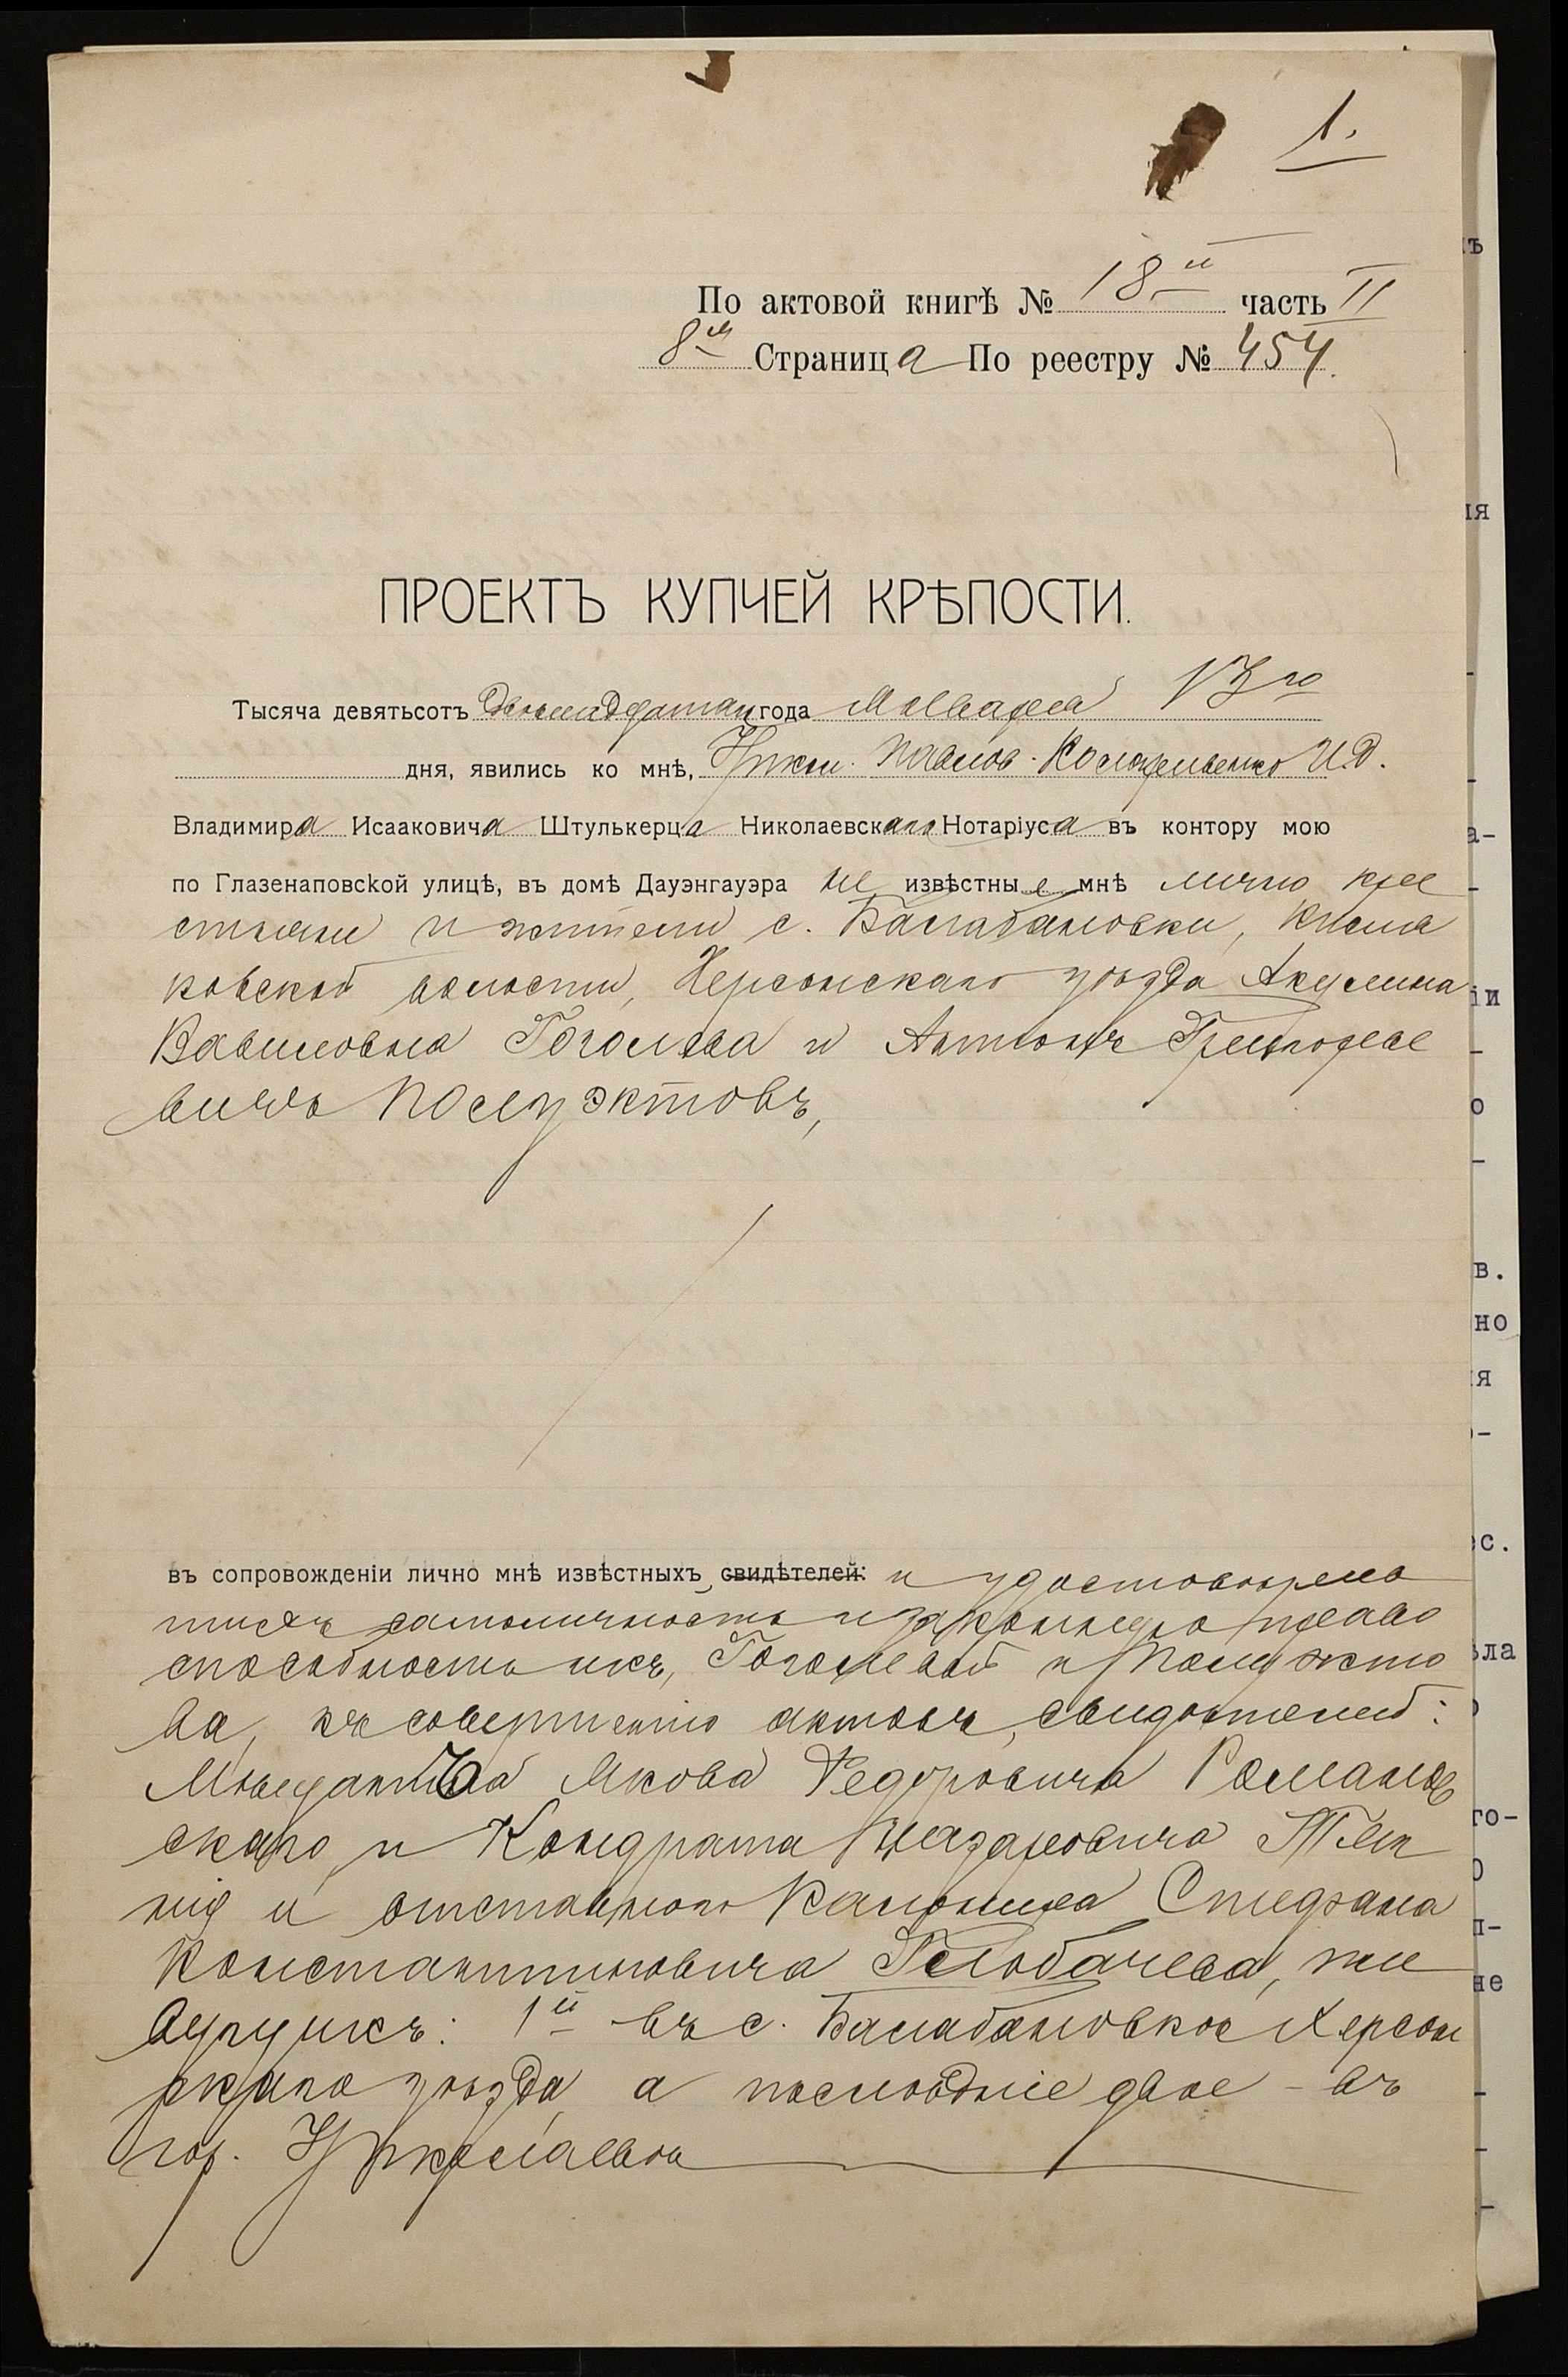 1.
По актовой книгѣ № 18й часть II
8я Страница По реестру № 454.
ПРОЕКТЪ КУПЧЕЙ КРѢПОСТИ.
Тысяча девятьсотъ года Января 13го
дня, явились ко мнѣ, И.Д.
Владимира Исааковича Штулькерца Николаевскаго Нотаріуса въ контору мою
по Глазенаповской улицѣ, въ домѣ Дауэнгауэра не извѣстные мнѣ лично кре
стьяне и жители с. Балабановки, Кисля
ковской волости, Херсонскаго уѣзда Акулина
Вавиловна Гоголева и Антонъ Григорье
вичъ Полуэктовъ,
въ сопровожденіи лично мнѣ извѣстныхъ, свидѣтелей: и удостовѣрив
шихъ самоличность и законную право
способность ихъ, Гоголевой и Полуэкто
ва, къ совершенію актовъ, свидѣтелей:
Мѣщанъ Якова Федоровича Романов
скаго и Кондрата Назаровича
и отставного Стефана
Константиновича Голобачева, жи
вущихъ: 1й въ с. Балабановкѣ Херсон
скаго уѣзда, а послѣдніе двое – въ
гор. Николаевѣ